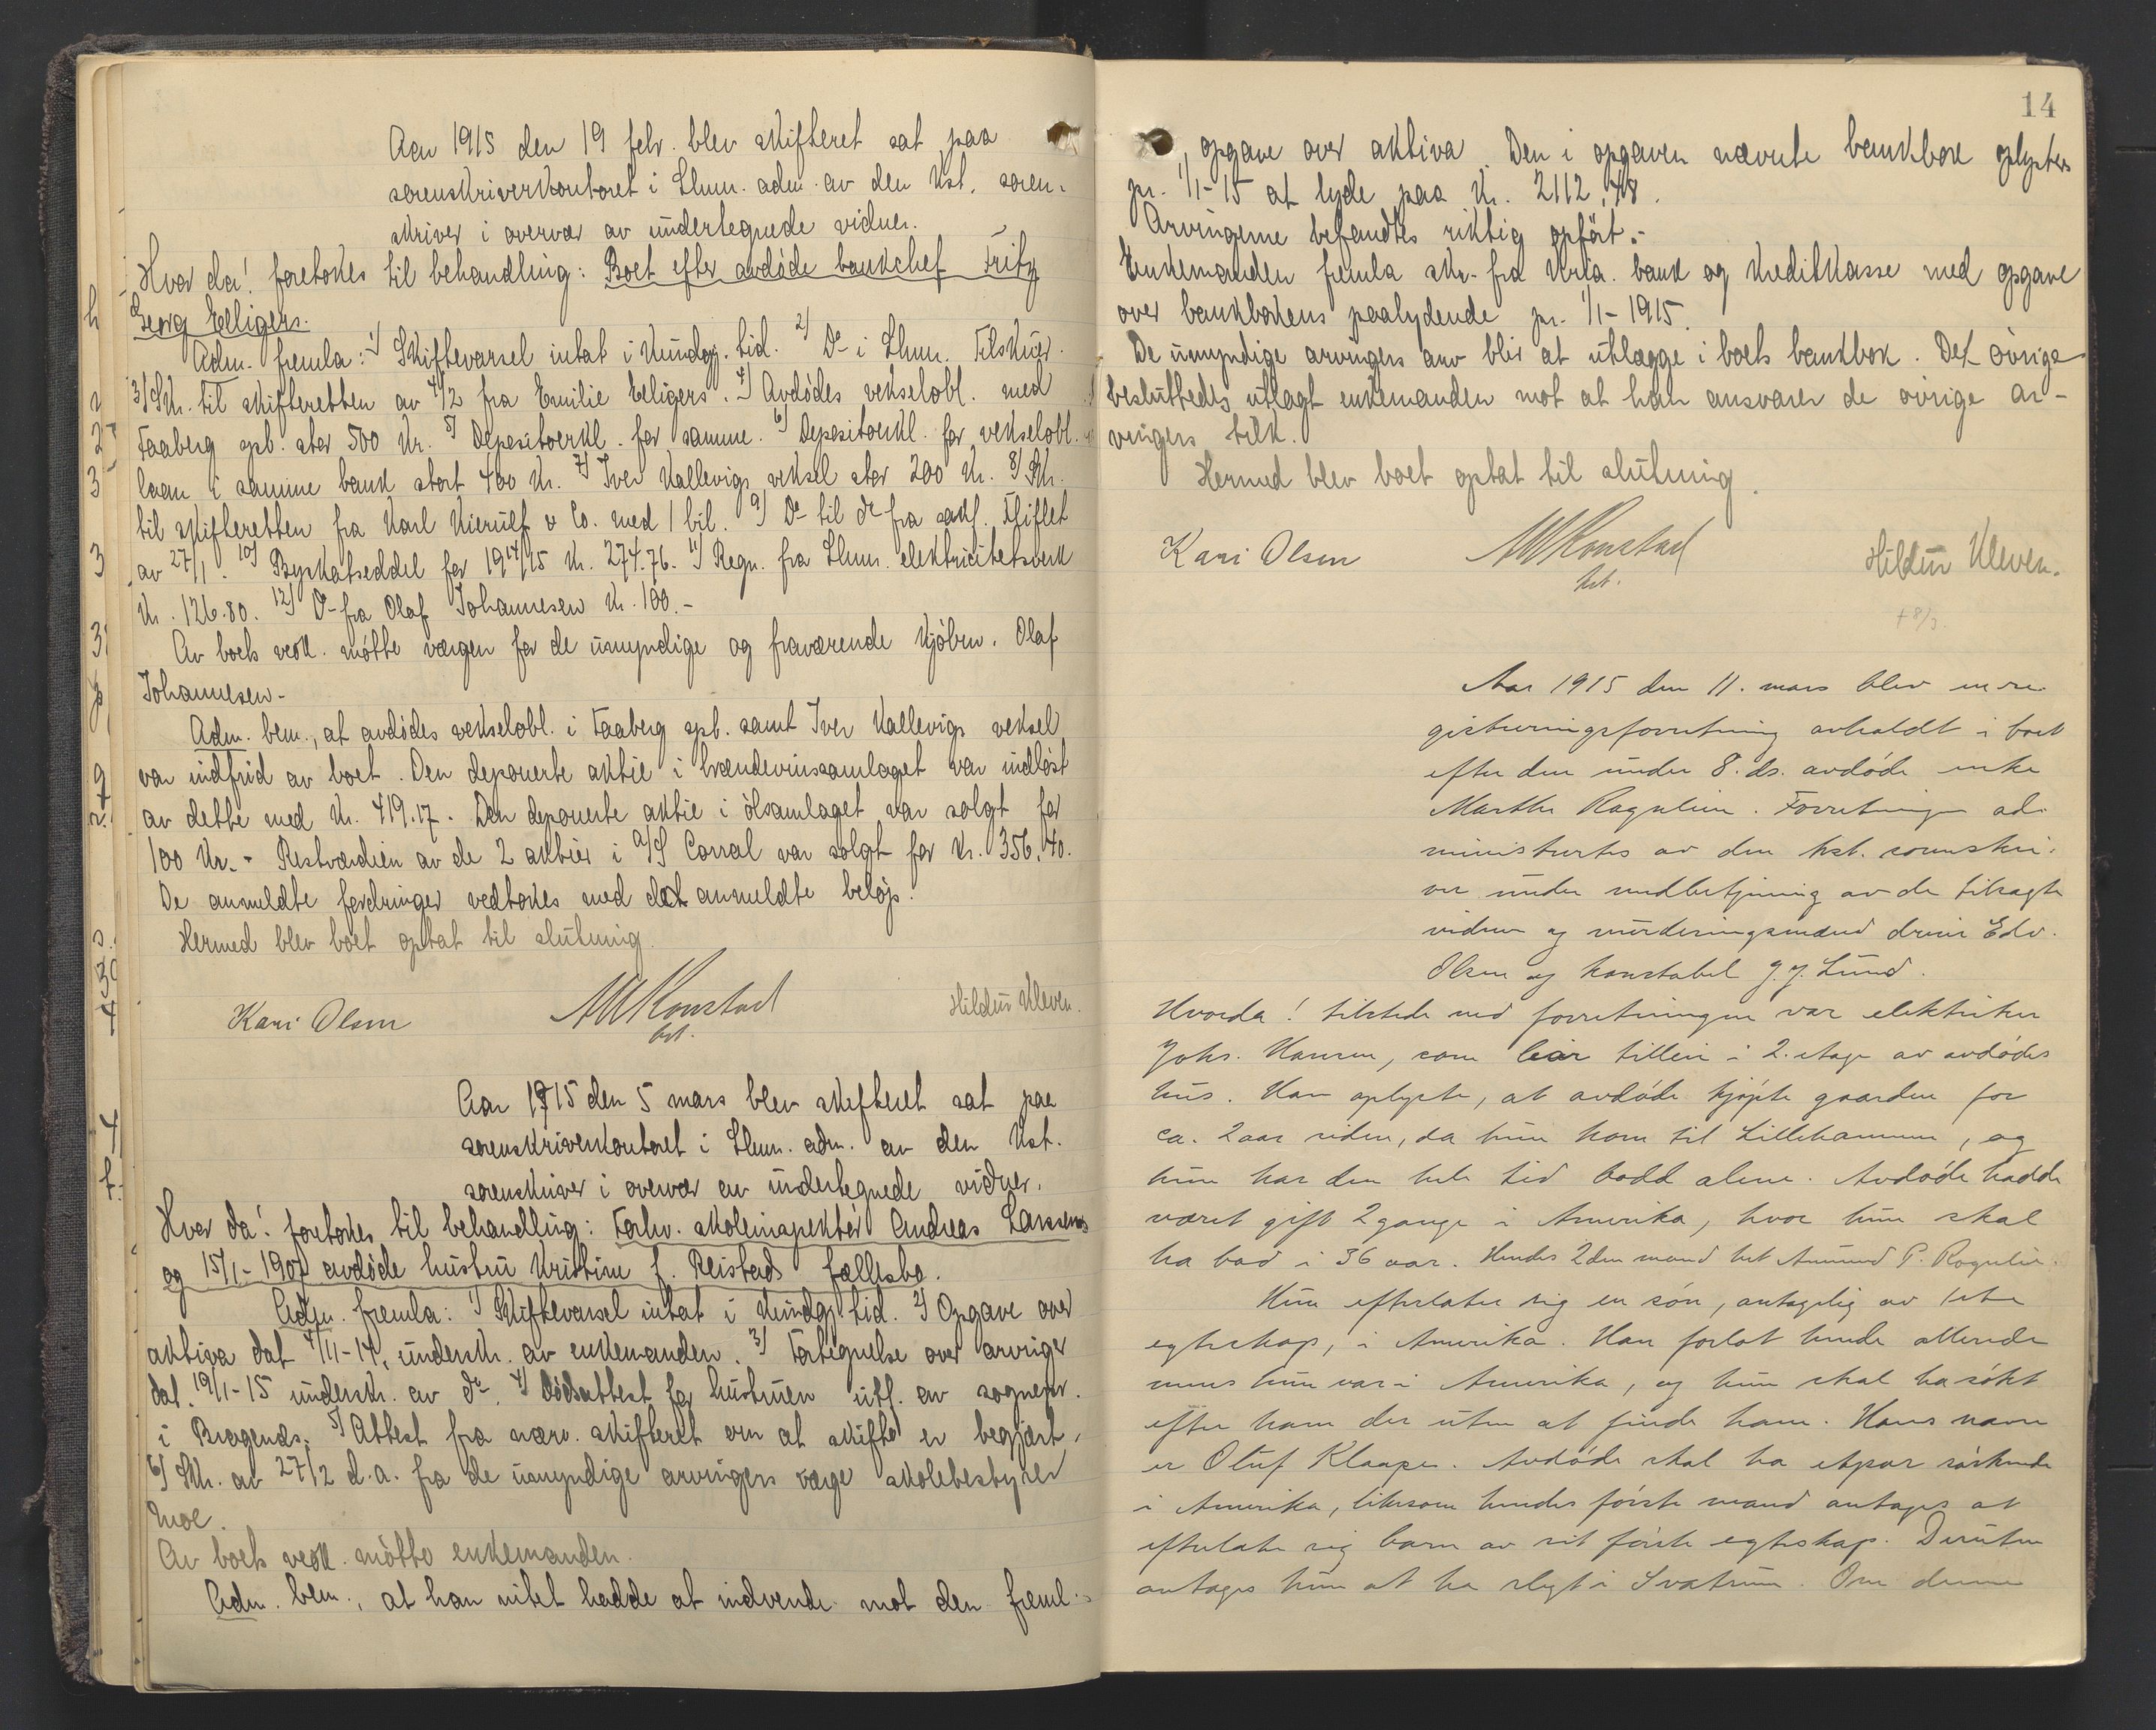 Aar 1915 den 19 febr. blev skifteret sat paa
sorenskriverkontoret i Lhmr. adm. av den kst. soren-
skriver i overvær av undertegnede vidner.
Hvor da! foretokes til behandling: Boet efter avdøde bankchef Fritz
Georg Eeligers.
Adm. fremla: 1) Skiftevarsel intat i Kundgj. tid. 2) Do i Lhmr. Tilskuer.
3) Skr. til skifteretten av 4/2 fra Emilie Eeligers. 4) Avdødes vekselobl. med
Faaberg spb. stor 500 Kr. 5) Depositoerkl. for samme. 6) Depositoerkl. for vekselobl.
laan i samme bank stort 400 Kr. 7) Iver Kallevigs veksel stor 200 Kr. 8) Skr.
til skifteretten fra Karl Kierulf & Co. med 1 bil. 9) Do til do fra sakf. Fliflet
av 27/1. 10) Byskatseddel for 1914/15 Kr. 274.76. 11) Regn. fra Lhmr. elektricitetsverk
Kr. 126.80. 12) Do fra Olaf Johannesen Kr. 100.-
Av boets vedk. møtte vergen for de umyndige og fraværende kjøbm. Olaf
Johannesen.
Adm. bem., at avdødes vekselobl. i Faaberg spb. samt Iver Kallevigs veksel
var indfrid av boet. Den deponerte aktie i brændevinssamlaget var indløst
av dette med Kr. 419.17. Den deponerte aktie i ølsamlaget var solgt for
100 Kr. - Restværdien av de 2 aktier i A/S Corral var solgt for Kr. 356.40.
De anmeldte fordringer vedtokes med det anmeldte beløp.
Hermed blev boet optat til slutning.
Kari Olsen
Konstad
kst.
Hildur Kleven.
Aar 1915 den 5 mars blev skifteret sat paa
sorenskriverkontoret i Lhmr. adm. av den kst.
sorenskriver i overvær av undertegnede vidner.
Hvor da! foretokes til behandling: Forhv. skoleinspektør Andreas Larssens
og 15/1-1907 avdøde hustru Kristine f. Reistads fællesbo.
Adm. fremla: 1) Skiftevarsel intat i Kundgj. tid. 2) Opgave over
aktiva dat 4/11-14, underskr. av enkemanden. 3) Fortegnelse over arvinger
dat. 19/1-15 underskr. av do. 4) Dødsattest for hustruen utf. av sognepr.
i Bragenes. 5) Attest fra nærv. skifteret om at skifte er begjært.
6) Skr. av 27/2 d.a. fra de umyndige arvingers verge skolebestyrer
Moe.
Av boets vedk. møtte enkemanden.
Adm. bem., at han intet hadde at indvende mot den freml.
14
opgave over aktiva. Den i opgaven nævnte bankbok oplystes
pr. 1/1-15 at lyde paa Kr. 2112,48.
Arvingerne befandtes riktig opført.-
Enkemanden fremla skr. fra Kria. bank og Kreditkasse med opgave
over bankbokens paalydende pr. 1/1-1915.
De umyndige arvingers arv blir at utlægge i boets bankbok. Det øvrige
besluttedes utlagt enkemanden mot at han ansvarer de øvrige ar-
vingers tilk.
Hermed blev boet optat til slutning.
Kari Olsen
Konstad
kst.
Hildur Kleven.
+ 8/3.
Aar 1915 den 11. mars blev en re-
gistreringsforretning avholdt i boet
efter den under 8. ds. avdøde enke
Marthe Rogulien. Forretningen ad-
ministrertes av den kst. sorenskri-
ver under medbetjening av de tilsagte
vidner og vurderingsmænd dreier Edv.
Olsen og konstabel J. J. Lund.
Hvorda! tilstede ved forretningen var elektriker
Johs. Hansen, som bor tilleie i 2. etage av avdødes
hus. Han oplyste, at avdøde kjøpte gaarden for
ca. 2 aar siden, da hun kom til Lillehammer, og
hun har den hele tid bodd alene. Avdøde hadde
været gift 2 gange i Amerika, hvor hun skal
ha bod i 36 aar. Hendes 2den mand het Amund P. Rogulien.
Hun efterlater sig en søn, antagelig av 1ste
egteskap, i Amerika. Han forlot hende allerede
mens hun var i Amerika, og hun skal ha søkt
efter ham der uten at finde ham. Hans navn
er Oluf Klaape. Avdøde skal ha etpar søskende
i Amerika, likesom hendes første mand antages at
efterlate sig barn av sit første egteskap. Desuten
antages hun at ha slegt i Svatsum. Om denne